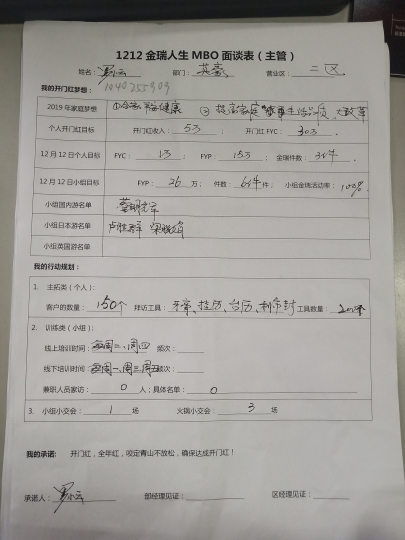 1212 金瑞人生 MBO 面谈表（主管）
姓名： 罗小云 部门： 英豪 营业区： 二区
我的开门红梦想： 1040255909
2019 年家庭梦想 ①全家平安健康 ② 提高家庭
个人开门红目标 开门红收入： 5万 开门红 FYC： 30万 .
12 月 12 日个人目标 FYC： 1万 FYP： 15万 金瑞件数： 3件 .
12 月 12 日小组目标 FYP： 26 万； 件数： 6件 件； 小组金瑞活动率： 100%.
小组国内游名单
小组日本游名单
小组英国游名单
我的行动规划：
1. 主拓类（个人）：
客户的数量： 150个 拜访工具： 挂历、台历、利市封 工具数量： 200个
2. 训练类（小组）：
线上培训时间： 每周二、周四 频次：
线下培训时间： 每周一、周三、周五 频次：
兼职人员家访： 0 人；具体名单： 0
3. 小组小交会： 1 场 火锅小交会： 3 场
我的承诺： 开门红，全年红，咬定青山不放松，确保达成开门红！
承诺人： 罗小云 部经理见证： 区经理见证：